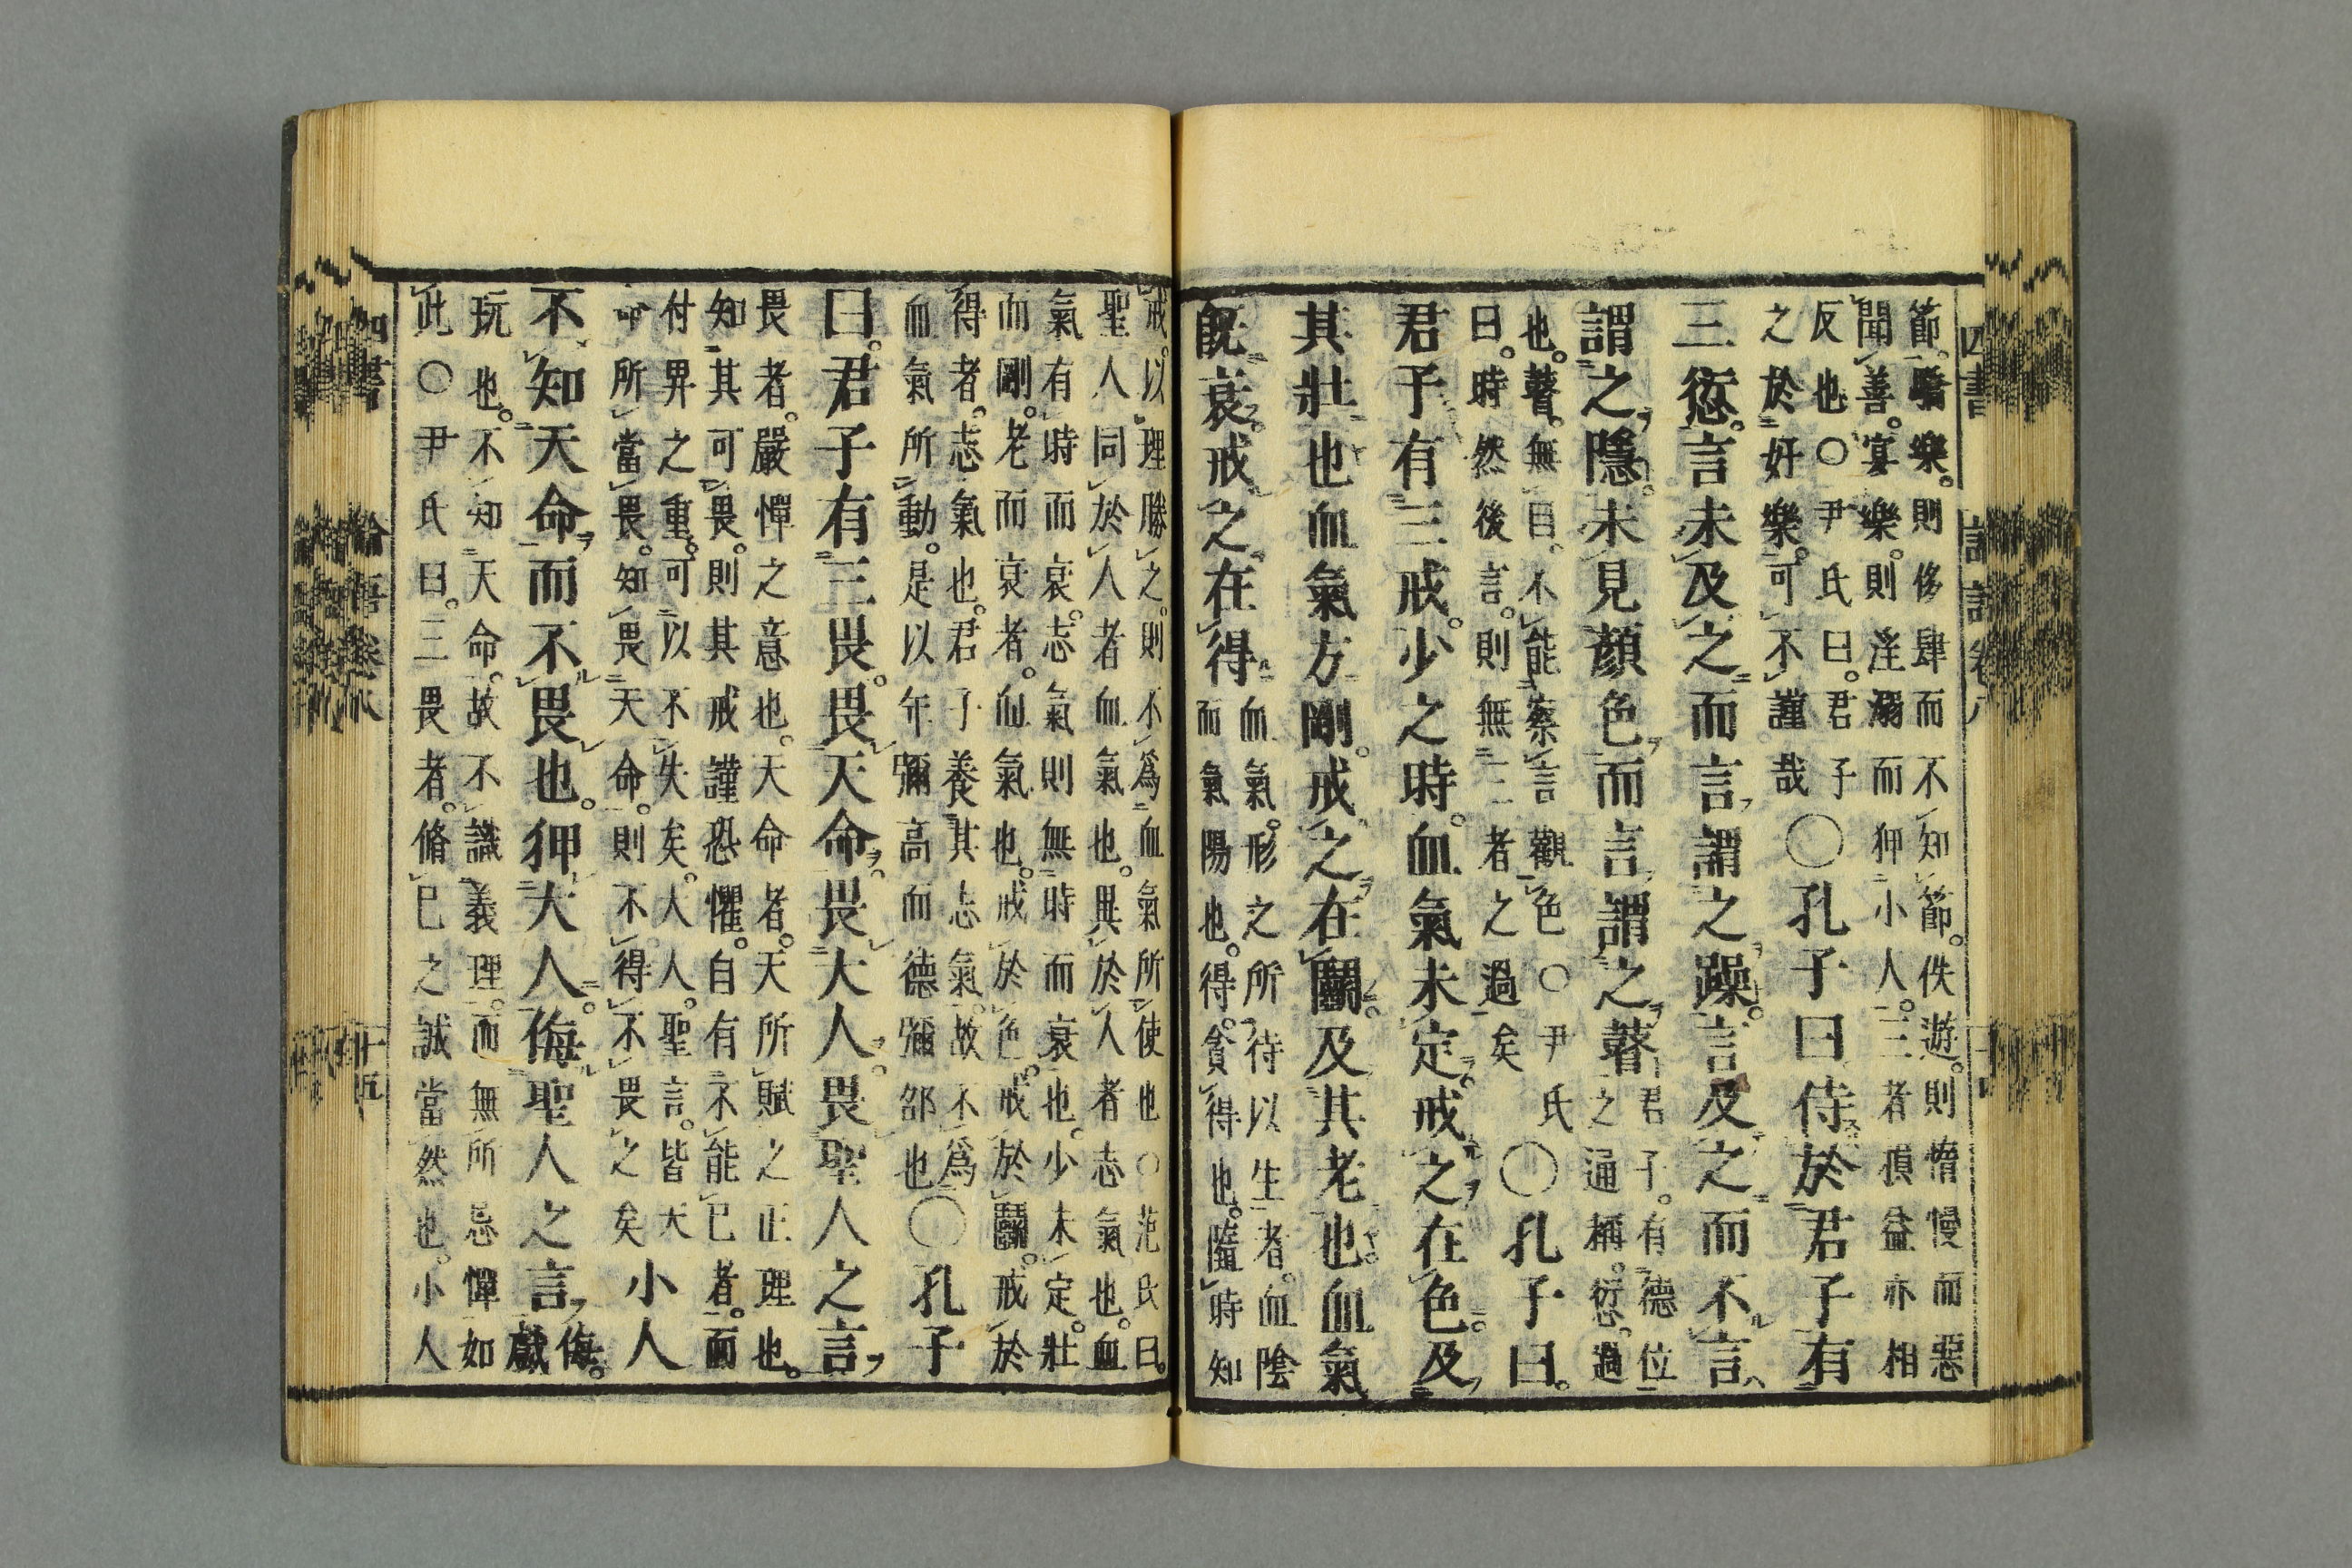 節。驕樂。則侈肆而不知節。佚遊。則惰慢而惡
聞善。宴樂。則淫溺而狎小人。三者損益亦相
反也○尹氏曰。君子
之於好樂。可不謹哉
○孔子曰侍於君子有
三愆。言未及之而言謂之躁。言及之而不言
謂之隱。未見顏色而言謂之瞽
君子。有德位
之通稱。愆。過
也。瞽。無目。不能察言觀色○尹氏
曰。時然後言。則無三者之過矣
○孔子曰。
君子有三戒。少之時。血氣未定。戒之在色。及
其壯也血氣方剛。戒之在鬭。及其老也。血氣
既衰。戒之在得
血氣。形之所待以生者。血陰
而氣陽也。得。貪得也。隨時知
戒。以理勝之。則不爲血氣所使也○范氏曰。
聖人同於人者血氣也。異於人者志氣也。血
氣有時而衰。志氣則無時而衰也。少未定。壯
而剛。老而衰者。血氣也。戒於色。戒於鬭。戒於
得者。志氣也。君子養其志氣。故不爲
血氣所動。是以年彌高而德彌邵也
○孔子
曰。君子有三畏。畏天命。畏大人。畏聖人之言
畏者。嚴憚之意也。天命者。天所賦之正理也。
知其可畏。則其戒謹恐懼。自有不能已者。而
付畀之重。可以不失矣。大人。聖言。皆天
命所當畏。知畏天命。則不得不畏之矣
小人
不知天命而不畏也。狎大人侮聖人之言
侮。戲
玩也。不知天命。故不識義理。而無所忌憚如
此○尹氏曰。三畏者。脩己之誠當然也。小人
四書
論語卷八
十五